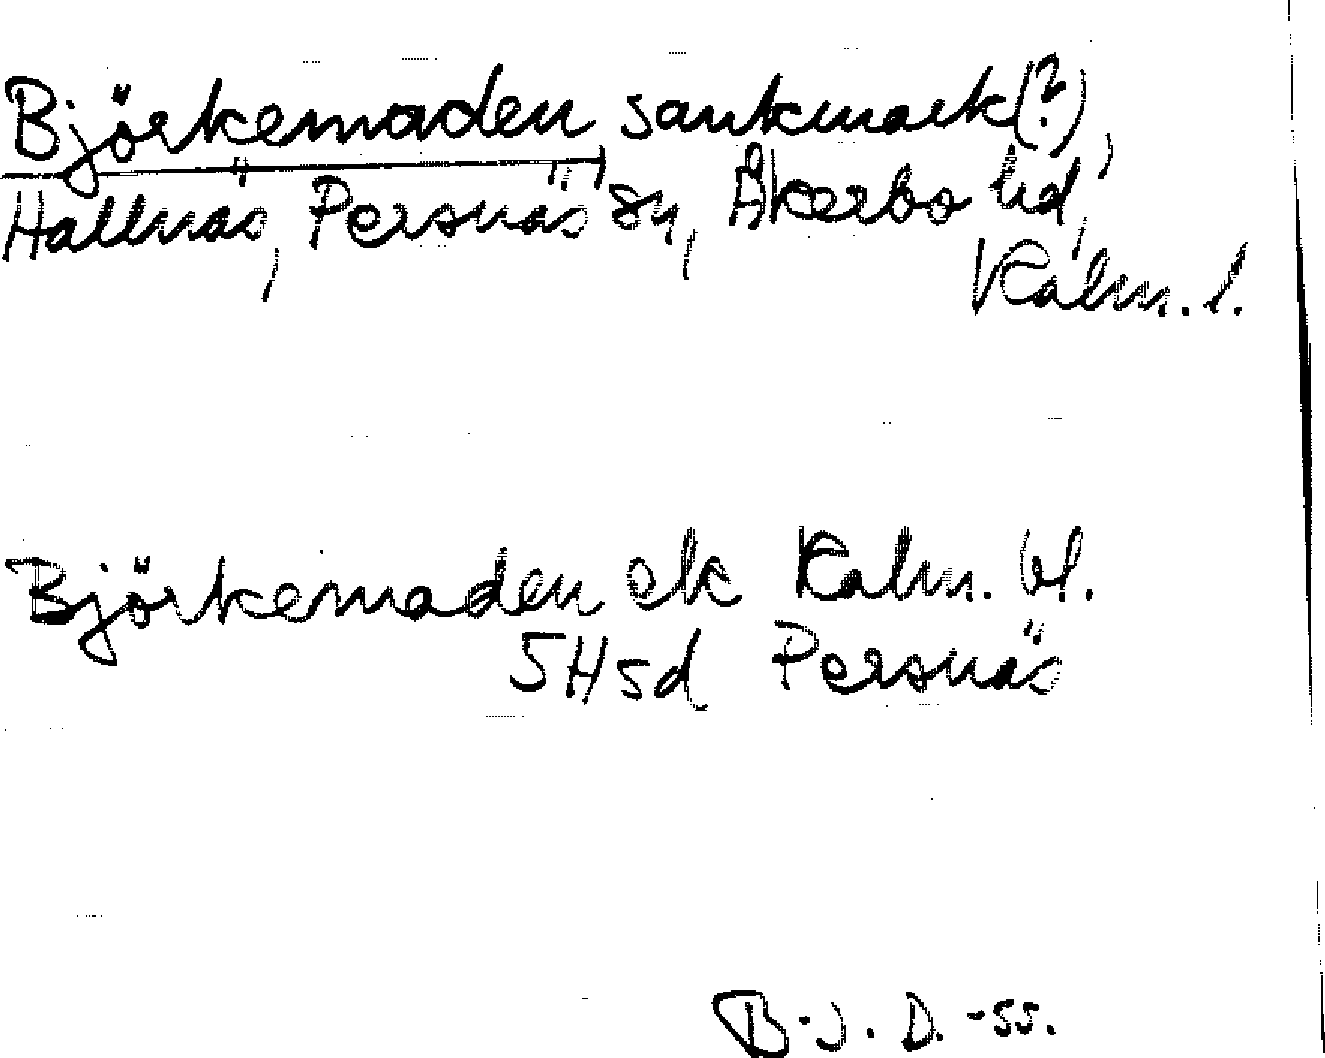 Björkemaden sankmark(?),
Hallnäs, Persnäs sn, Åkerbo hd,
Kalm. l.
Björkemaden ek Kalm. bl.
5H5d Persnäs
B-J. D.-ss.